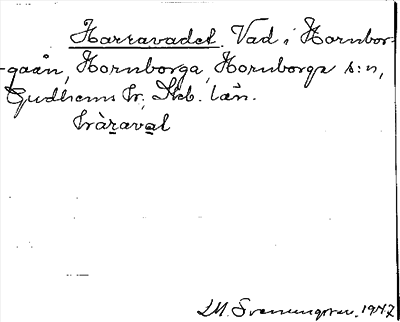 Harravadet. Vad i Hornbor-
-gaån, Hornborga, Hornborga s:n,
Gudhems hr, Skb. län.
hàraval
I.M. Svenungsson. 1947